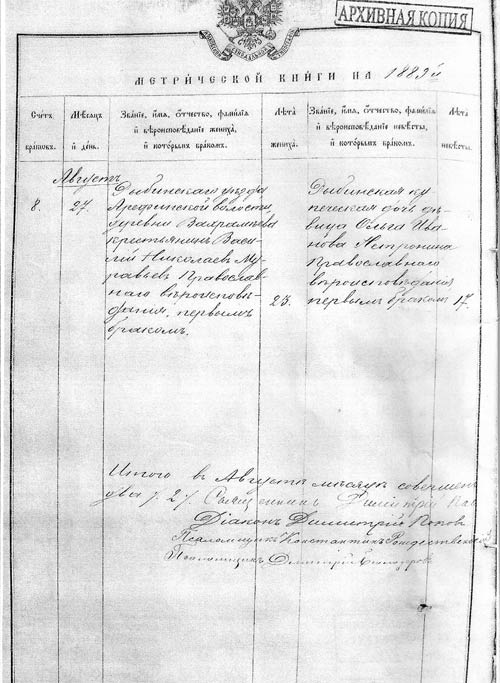 АРХИВНАЯ КОПИЯ
МЕТРИЧЕСКОЙ КНИГИ НА 1889й
Счетъ браковъ.
Мѣсяцъ и день.
Званіе, имя, отчество, фамилія и вѣроисповѣданіе жениха, и которымъ бракомъ.
Лѣта жениха.
Званіе, имя, отчество, фамилія и вѣроисповѣданіе невѣсты, и которымъ бракомъ.
Лѣта невѣсты.
Августъ
8.
27.
Рыбинскаго уѣзда
Арефинской волости,
деревни
крестьянинъ Васи-
лій Николаевъ Му-
равьевъ, Православ-
наго вѣроисповѣ-
данія, первымъ
бракомъ.
23.
Рыбинская ку-
печеская дочь дѣ-
вица Ольга Ива-
нова
Православнаго
вѣроисповѣданія,
первымъ бракомъ
17.
Итого въ Августѣ мѣсяцѣ
Священникъ Димитрій
Діаконъ Димитрій Поповъ
Псаломщикъ Константинъ Рождественскій
Псаломщикъ Димитрій